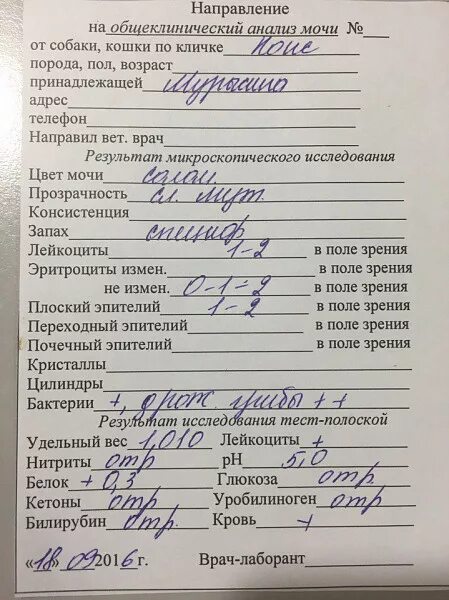 Направление
на общеклинический анализ мочи №
от собаки, кошки по кличке
порода, пол, возраст
принадлежащей
адрес
телефон
Направил вет. врач
Результат микроскопического исследования
Цвет мочи солом.
Прозрачность сл. мут.
Консистенция
Запах специф
Лейкоциты 1-2 в поле зрения
Эритроциты измен. в поле зрения
не измен. 0-1-2 в поле зрения
Плоский эпителий 1-2 в поле зрения
Переходный эпителий в поле зрения
Почечный эпителий в поле зрения
Кристаллы
Цилиндры
Бактерии +, дрож. грибы ++
Результат исследования тест-полоской
Удельный вес 1,010 Лейкоциты +
Нитриты отр pH 5,0
Белок + 0,3 Глюкоза отр.
Кетоны отр Уробилиноген отр
Билирубин отр. Кровь +
«18» 09 2016 г. Врач-лаборант